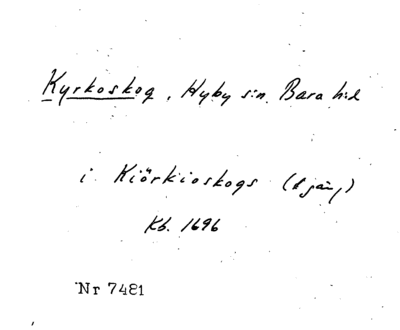 Kyrkoskog, Hyby s:n. Bara h:d
i Kiörkioskogs (1 gång)
Kb. 1696
Nr 7481